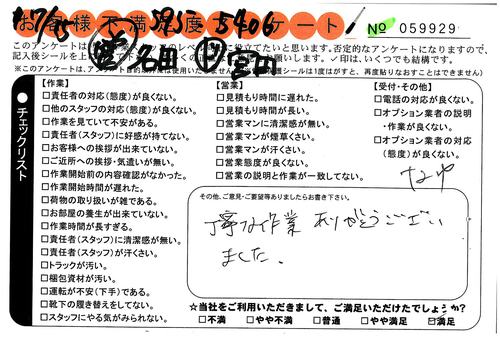 お客様不満足度アンケート
№ 059929
5406
このアンケートは
のレベル
に役立てたいと思います。否定的なアンケートになりますので、
記入後シールを上
お願いします。✓印は、いくつでも結構です。
(※このアンケートは、アンケート目的
シールは1度はがすと、再度貼りなおすことはできません)
●チェックリスト
【作業】
□責任者の対応(態度)が良くない。
□他のスタッフの対応(態度)が良くない。
□作業を見ていて不安がある。
□責任者(スタッフ)に好感が持てない。
□お客様への挨拶が出来ていない。
□ご近所への挨拶・気遣いが無い。
□作業開始前の内容確認がなかった。
□作業開始時間が遅れた。
□荷物の取り扱いが雑である。
□お部屋の養生が出来ていない。
□作業時間が長すぎる。
□責任者(スタッフ)に清潔感が無い。
□責任者(スタッフ)が汗くさい。
□トラックが汚い。
□梱包資材が汚い。
□運転が不安(下手)である。
□靴下の履き替えをしてない。
□スタッフにやる気がみられない。
【営業】
□見積もり時間に遅れた。
□見積もり時間が長い。
□営業マンに清潔感が無い。
□営業マンが煙草くさい。
□営業マンが汗くさい。
□営業態度が良くない。
□営業の説明と作業が一致してない。
【受付・その他】
□電話の対応が良くない。
□オプション業者の説明
・作業が良くない。
□オプション業者の対応
(態度)が良くない。
なし
その他、ご意見・ご要望等ありましたらお書き下さい。
丁寧な作業 ありがとうござい
ました。
☆当社をご利用いただきまして、ご満足いただけたでしょうか?
□不満 □やや不満 □普通 □やや満足 ☑満足